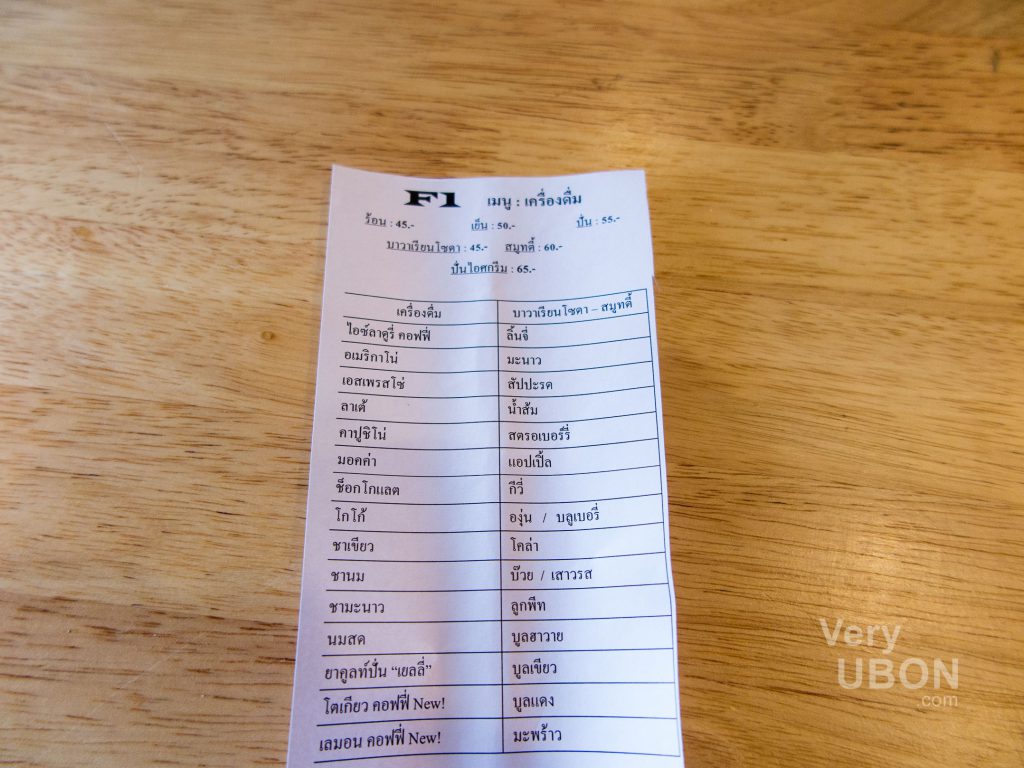 F1 เมนู : เครื่องดื่ม
ร้อน : 45.- เย็น : 50.- ปั่น : 55.-
บาวาเรียนโซดา : 45.- สมูทตี้ : 60.-
ปั่นไอศกรีม : 65.-
เครื่องดื่ม บาวาเรียนโซดา – สมูทตี้
ไอซ์ลาตูรี่ คอฟฟี่ ลิ้นจี่
อเมริกาโน่ มะนาว
เอสเพรสโซ่ สัปปะรด
ลาเต้ น้ำส้ม
คาปูชิโน่ สตรอเบอร์รี่
มอคค่า แอปเปิ้ล
ช็อกโกแลต กีวี่
โกโก้ องุ่น / บลูเบอรี่
ชาเขียว โคล่า
ชานม บ๊วย / เสาวรส
ชามะนาว ลูกพีท
นมสด บูลฮาวาย
ยาคูลท์ปั่น “เยลลี่” บูลเขียว
โตเกียว คอฟฟี่ New! บูลแดง
เลมอน คอฟฟี่ New! มะพร้าว
Very
UBON
.com